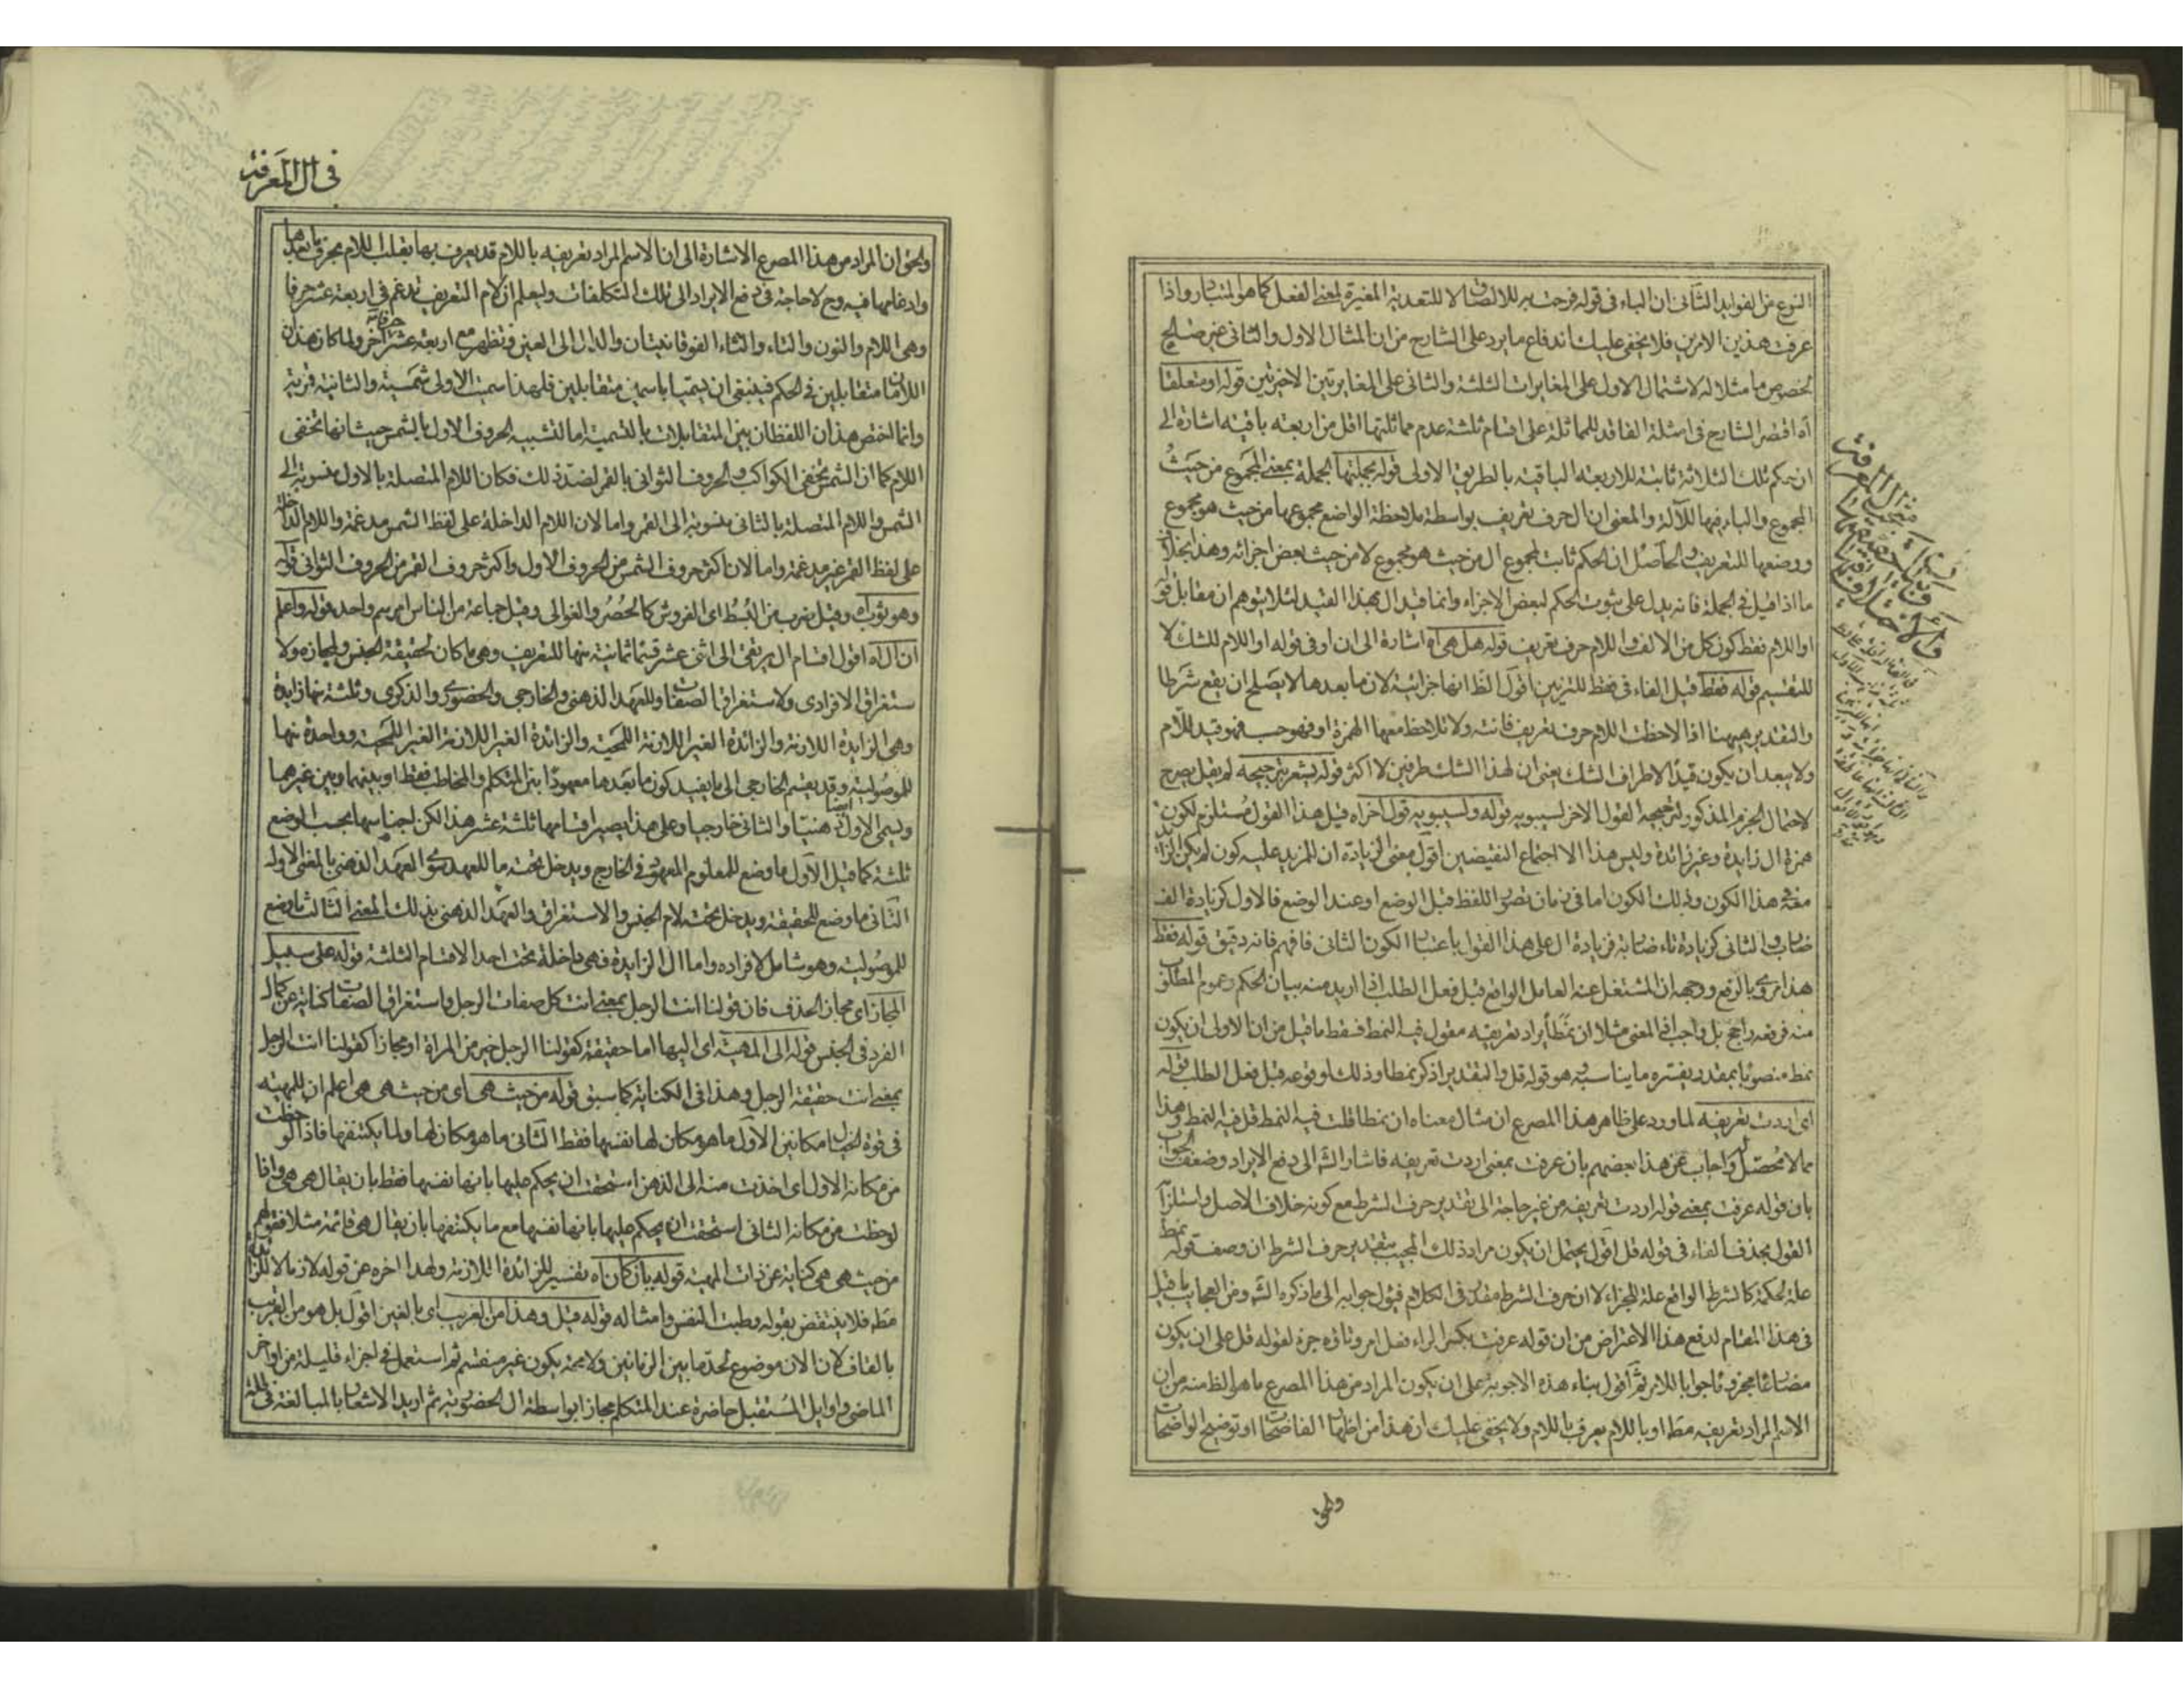 النوع من الفوايد الثانى ان الباء فى قوله فرحت به للالصاق لا للتعدية المغيرة لمعنى الفعل كما هو المتبادر واذا
عرفت هذين الامرين فلا يخفى عليك اندفاع ما يرد على الشارح من ان المثال الاول والثانى غير صالح
لخصوص ما مثلا له لاشتمال الاول على المغايرات الثلثة والثانى على المغايرتين الاخيرتين قوله او متعلقا
آه اقتصر الشارح فى امثلة الفاقد للمماثلة على اقسام ثلثة عدم مماثلتها اقل من اربعة باقية اشارة الى
ان حكم تلك الثلاثة ثابتة للاربعة الباقية بالطريق الاولى قوله بجملتها الجملة بمعنى المجموع من حيث
المجموع والباء فيها للآلة والمعنى ان ال حرف تعريف بواسطة ملاحظة الواضع مجموعها من حيث هو مجموع
ووضعها للتعريف والحاصل ان الحكم ثابت لمجموع ال من حيث هو مجموع لا من حيث بعض اجزائه وهذا بخلاف
ما اذا قيل فى الجملة فانه يدل على ثبوت الحكم لبعض الاجزاء وانما قيد ال بهذا القيد لئلا يتوهم ان مقابل قوله
او اللام فقط كون كل من الالف واللام حرف تعريف قوله هل هى آه اشارة الى ان او فى قوله او اللام للشك لا
للتقسيم قوله فقط قيل الفاء فى فقط للتزيين اقول الظ انها جزائية لان ما بعدها لا يصلح ان يقع شرطا
والتقدير ههنا اذا لاحظت اللام حرف تعريف فانته ولا تلاحظ معها الهمزة او فهو حسب فهو قيد للام
ولا يبعد ان يكون قيدا لاطراف الشك يعنى ان لهذا الشك طرفين لا اكثر قوله يشعر بترجيحه لم يقل يصرح
لاحتمال الجزم المذكور لترجيحه القول الاخر لسيبويه قوله ولسيبويه قول آخر آه قيل هذا القول مستلزم لكون
همزة ال زايدة وغير زائدة وليس هذا الا اجتماع النقيضين اقول معنى الزيادة ان للمزيد عليه كون لم يكن الزائد
معه فى هذا الكون وذلك الكون اما فى زمان تصور اللفظ قبل الوضع او عند الوضع فالاول كزيادة الف
ضارب والثانى كزيادة تاء ضاربة فزيادة ال على هذا القول باعتبار الكون الثانى فافهم فانه دقيق قوله فقط
هذا مروى بالرفع ووجهه ان المشتغل عنه العامل الواقع قبل فعل الطلب اذا اريد منه بيان الحكم وعموم المطلق
منه فرفعه راجح بل واجب اذ المعنى مثلا ان نمطا يراد تعريفه مقول فيه النمط فسقط ما قيل من ان الاولى ان يكون
نمط منصوبا بمقدر يفسره ما يناسبه وهو قوله قل والتقدير اذكر نمطا وذلك لوقوعه قبل فعل الطلب قوله
اى اردت تعريفه لما ورد على ظاهر هذا المصرع ان مثال معناه ان نمطا قلت فيه النمط قل فيه النمط وهذا
مما لا محصل له واجاب عن هذا بعضهم بان عرفت بمعنى اردت تعريفه فاشار الشه الى دفع الايراد وضعف الجواب
بان قوله عرفت بمعنى قوله اردت تعريفه من غير حاجة الى تقدير حرف الشرط مع كونه خلاف الاصل واستلزام
القول بحذف الفاء فى قوله قل اقول يحتمل ان يكون مراد ذلك المجيب بتقدير حرف الشرط ان وصف قوله نمط
علة لحكمه كالشرط الواقع علة للجزاء لا ان حرف الشرط مقدر فى الكلام فيؤل جوابه الى ما ذكره الشه ومن العجايب ما قيل
فى هذا المقام لدفع هذا الاعتراض من ان قوله عرفت بكسر الراء فعل امر
مضارعا مجزوما جوابا للامر ثم اقول بناء هذه الاجوبة على ان يكون المراد من هذا المصرع ما هو الظ منه من ان
الاسم المراد تعريفه مطا او باللام يعرف باللام ولا يخفى عليك ان هذا من اظهار الفاضحات او توضيح الواضحات
والحق
فى ال المعرفة
والحق ان المراد من هذا المصرع الاشارة الى ان الاسم المراد تعريفه باللام قد يعرف بها بقلب اللام بحرف ما بعدها
وادغامها فيه وح لا حاجة فى دفع الايراد الى تلك التكلفات وليعلم ان لام التعريف تدغم فى اربعة عشر حرفا
وهى اللام والنون والتاء والثاء الفوقانيتان والدال الى العين وتظهر مع اربعة عشر حرفا آخر ولما كان هذان
اللامان متقابلين فى الحكم فينبغى ان يسميا باسمين متقابلين فلهذا سميت الاولى شمسية والثانية قمرية
وانما اختص هذان اللفظان بين المتقابلات بالتسمية اما لتشبيه الحروف الاول بالشمس حيث انها تخفى
اللام كما ان الشمس تخفى الكواكب والحروف الثوانى بالقمر لضد ذلك فكان اللام المتصلة بالاول منسوبة الى
الشمس واللام المتصلة بالثانى منسوبة الى القمر واما لان اللام الداخلة على لفظ الشمس مدغمة واللام الداخلة
على لفظ القمر غير مدغمة واما لان اكثر حروف الشمس من الحروف الاول واكثر حروف القمر من الحروف الثوانى قوله
وهو ثوب آه وقيل ضرب من البسط اى الفروش كالحصر والغوالى وقيل جماعة من الناس امرهم واحد قوله واعلم
ان ال آه اقول اقسام ال يرتقى الى اثنى عشر قسما ثمانية منها للتعريف وهى ما كان لحقيقة الجنس ولمجازه ولا
ستغراق الافرادى ولاستغراق الصفات وللعهد الذهنى والخارجى والحضورى والذكرى وثلثة منها زايدة
وهى الزايدة اللازمة والزائدة الغير اللازمة اللمحية والزائدة الغير اللازمة الغير اللمحية وواحدة منها
للموصولية وقد يقسم الخارجى الى ما يفيد كون ما بعدها معهودا بين المتكلم والمخاطب فقط او بينهما وبين غيرهما
ويسمى الاول ايضا ذهنيا والثانى خارجيا وعلى هذا يصير اقسامها ثلثة عشر هذا لكن اجناسها بحسب الوضع
ثلثة كما قيل الاول ما وضع للمعلوم المعهود فى الخارج ويدخل تحته ما للعهد سوى العهد الذهنى بالمعنى الاول
الثانى ما وضع للحقيقة ويدخل تحت لام الجنس والاستغراق والعهد الذهنى بذلك المعنى الثالث ما وضع
للموصولية وهو شامل لافراده واما ال الزايدة فهى داخلة تحت احد الاقسام الثلثة قوله على سبيل
المجاز اى مجاز الحذف فان قولنا انت الرجل بمعنى انت كل صفات الرجل واستغراق الصفات كناية عن كمال
الفرد فى الجنس قوله الى المهية اى اليها اما حقيقة كقولنا الرجل خير من المراة او مجازا كقولنا انت الرجل
بمعنى انت حقيقة الرجل وهذا فى الكناية كما سبق قوله من حيث هى اى من حيث هى هى اعلم ان للمهية
فى قوة الخيال مكانين الاول ما هو مكان لها نفسها فقط الثانى ما هو مكان لها ولما يكتنفها فاذا لوحظت
من مكانه الاول اى اخذت منه الى الذهن استحقت ان يحكم عليها بانها نفسها فقط بان يقال هى هى واذا
لوحظت من مكانه الثانى استحقت ان يحكم عليها بانها نفسها مع ما يكتنفها بان يقال هى قائمة مثلا فقولهم
من حيث هى هى كناية عن ذات المهية قوله بان كان آه تفسير للزائدة اللازمة ولهذا اخره عن قوله لازما لا للزائدة
مطه فلا ينتقض بقوله وطبت النفس وامثاله قوله قيل وهذا من الغريب اى بالغين اقول بل هو من القريب
بالقاف لان الان موضوع لحد ما بين الزمانين ولا محة يكون غير منقسم ثم استعمل فى اجزاء قليلة من اواخر
الماضى واوايل المستقبل حاضرة عند المتكلم مجازا بواسطة ال الحضورية ثم اريد الاشعار بالمبالغة فى